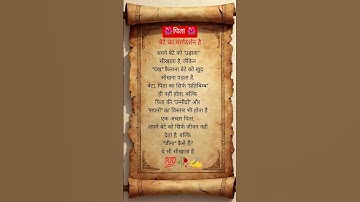 🌺पिता 🌺
बेटे का मार्गदर्शन है
अपने बेटे को "उड़ाना"
सीखाता है, लेकिन
"पंख" फैलाना बेटे को खुद
सीखना पड़ता है,
बेटा, पिता का सिर्फ "प्रतिबिम्ब"
ही नहीं होता, बल्कि
पिता की "उम्मीदों" और
"सपनों" का विस्तार भी होता है
एक अच्छा पिता,
अपने बेटे को सिर्फ जीवन नहीं
देता है, बल्कि
"जीना" कैसे है?
ये भी सीखाता है
💯🥀✍️